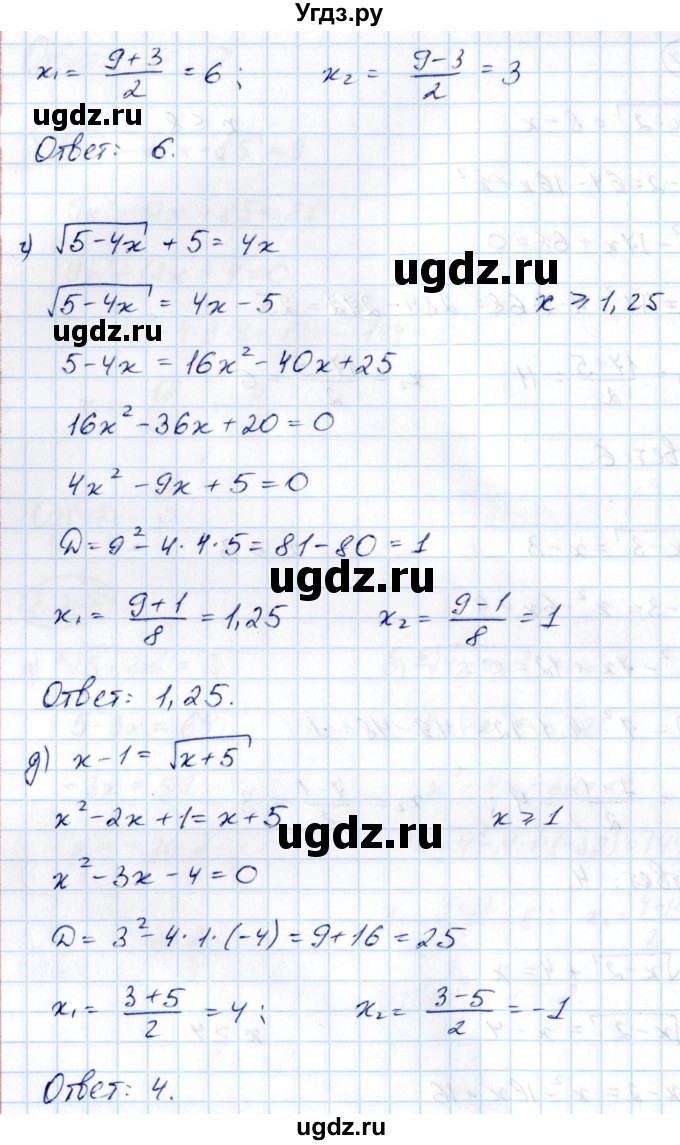 Угдз.ру
x₁ = (9+3)/2 = 6; x₂ = (9-3)/2 = 3
ugdz.ru
Ответ: 6.
г) √(5-4x) + 5 = 4x
ugdz.ru
√(5-4x) = 4x-5 x ⩾ 1,25
ugdz.ru
5-4x = 16x²-40x+25
16x²-36x+20=0
4x²-9x+5=0
D=9²-4·4·5=81-80=1
ugdz.ru
x₁ = (9+1)/8 = 1,25 x₂ = (9-1)/8 = 1
Ответ: 1,25.
д) x-1 = √(x+5)
x²-2x+1=x+5 x ⩾ 1
ugdz.ru
x²-3x-4=0
D=3²-4·1·(-4)=9+16=25
x₁ = (3+5)/2 = 4; x₂ = (3-5)/2 = -1
ugdz.ru
Ответ: 4.
ugdz.ru